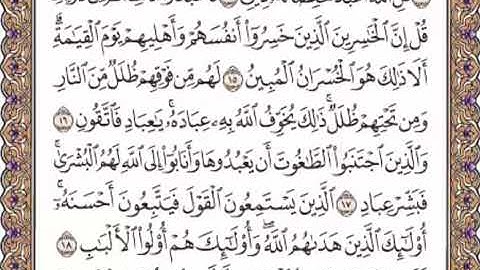 قُلْ إِنَّ ٱلْخَٰسِرِينَ ٱلَّذِينَ خَسِرُوٓا۟ أَنفُسَهُمْ وَأَهْلِيهِمْ يَوْمَ ٱلْقِيَٰمَةِۗ
أَلَا ذَٰلِكَ هُوَ ٱلْخُسْرَانُ ٱلْمُبِينُ ١٥ لَهُم مِّن فَوْقِهِمْ ظُلَلٌ مِّنَ ٱلنَّارِ
وَمِن تَحْتِهِمْ ظُلَلٌۚ ذَٰلِكَ يُخَوِّفُ ٱللَّهُ بِهِۦ عِبَادَهُۥۚ يَٰعِبَادِ فَٱتَّقُونِ ١٦
وَٱلَّذِينَ ٱجْتَنَبُوا۟ ٱلطَّٰغُوتَ أَن يَعْبُدُوهَا وَأَنَابُوٓا۟ إِلَى ٱللَّهِ لَهُمُ ٱلْبُشْرَىٰۚ
فَبَشِّرْ عِبَادِ ١٧ ٱلَّذِينَ يَسْتَمِعُونَ ٱلْقَوْلَ فَيَتَّبِعُونَ أَحْسَنَهُۥٓۚ
أُو۟لَٰٓئِكَ ٱلَّذِينَ هَدَىٰهُمُ ٱللَّهُۖ وَأُو۟لَٰٓئِكَ هُمْ أُو۟لُوا۟ ٱلْأَلْبَٰبِ ١٨